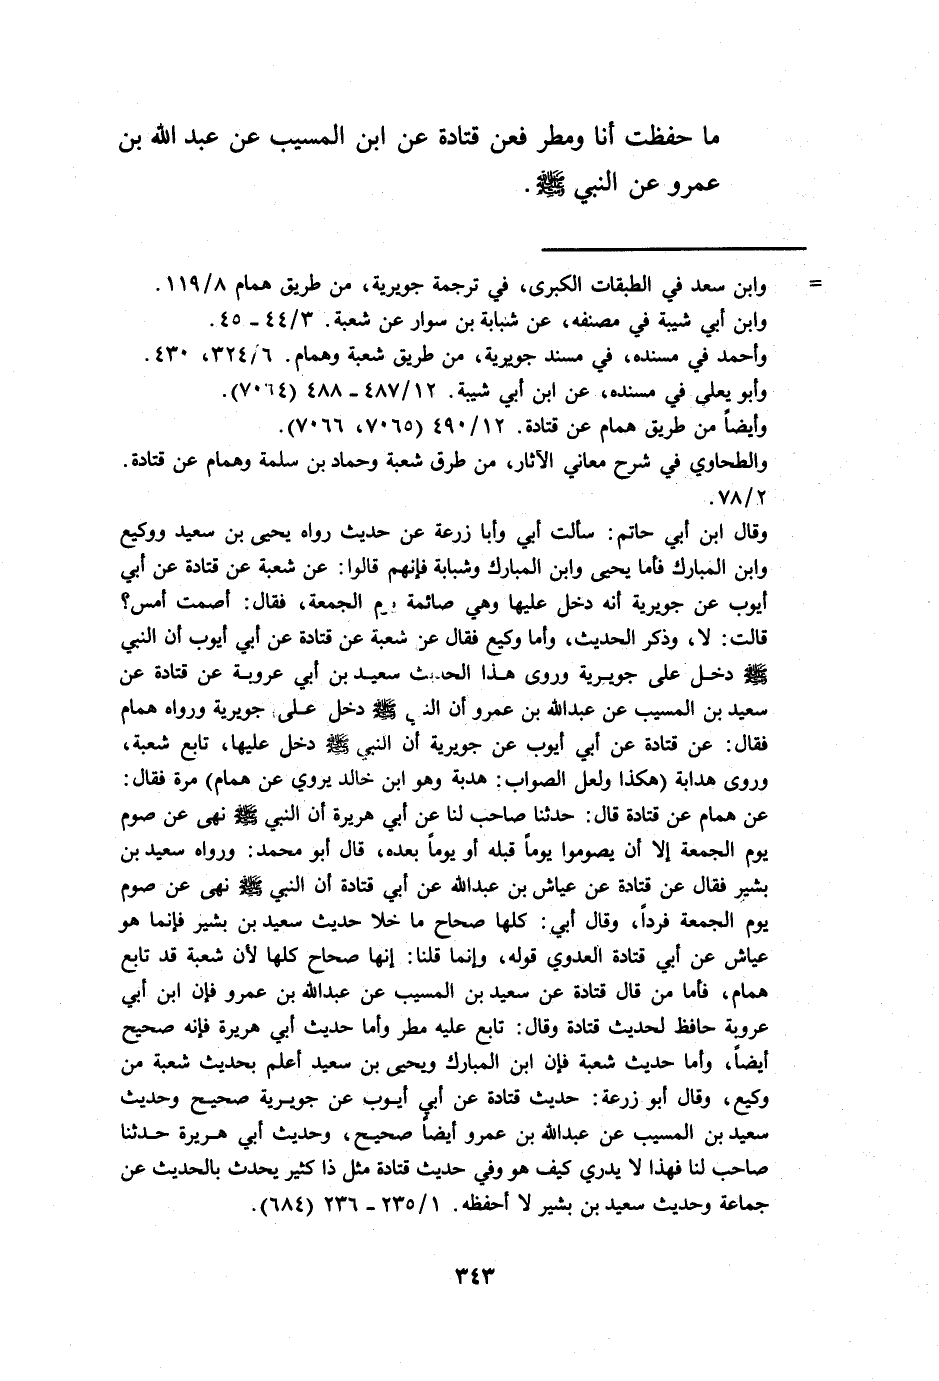 ما حفظت أنا ومطر فعن قتادة عن ابن المسيب عن عبد الله بن
عمرو عن النبي ﷺ.
= وابن سعد في الطبقات الكبرى، في ترجمة جويرية، من طريق همام ١١٩/٨.
وابن أبي شيبة في مصنفه، عن شبابة بن سوار عن شعبة. ٤٤/٣ - ٤٥.
وأحمد في مسنده، في مسند جويرية، من طريق شعبة وهمام. ٣٢٤/٦، ٤٣٠.
وأبو يعلي في مسنده، عن ابن أبي شيبة. ٤٨٧/١٢ - ٤٨٨ (٧٠٦٤).
وأيضاً من طريق همام عن قتادة. ٤٩٠/١٢ (٧٠٦٥، ٧٠٦٦).
والطحاوي في شرح معاني الآثار، من طرق شعبة وحماد بن سلمة وهمام عن قتادة.
٧٨/٢.
وقال ابن أبي حاتم: سألت أبي وأبا زرعة عن حديث رواه يحيى بن سعيد ووكيع
وابن المبارك فأما يحيى وابن المبارك وشبابة فإنهم قالوا: عن شعبة عن قتادة عن أبي
أيوب عن جويرية أنه دخل عليها وهي صائمة يوم الجمعة، فقال: أصمت أمس؟
قالت: لا، وذكر الحديث، وأما وكيع فقال عن شعبة عن قتادة عن أبي أيوب أن النبي
ﷺ دخل على جويرية وروى هذا الحديث سعيد بن أبي عروبة عن قتادة عن
سعيد بن المسيب عن عبدالله بن عمرو أن النبي ﷺ دخل على جويرية ورواه همام
فقال: عن قتادة عن أبي أيوب عن جويرية أن النبي ﷺ دخل عليها، تابع شعبة،
وروى هدابة (هكذا ولعل الصواب: هدبة وهو ابن خالد يروي عن همام) مرة فقال:
عن همام عن قتادة قال: حدثنا صاحب لنا عن أبي هريرة أن النبي ﷺ نهى عن صوم
يوم الجمعة إلا أن يصوموا يوماً قبله أو يوماً بعده، قال أبو محمد: ورواه سعيد بن
بشير فقال عن قتادة عن عياش بن عبدالله عن أبي قتادة أن النبي ﷺ نهى عن صوم
يوم الجمعة فرداً، وقال أبي: كلها صحاح ما خلا حديث سعيد بن بشير فإنما هو
عياش عن أبي قتادة العدوي قوله، وإنما قلنا: إنها صحاح كلها لأن شعبة قد تابع
همام، فأما من قال قتادة عن سعيد بن المسيب عن عبدالله بن عمرو فإن ابن أبي
عروبة حافظ لحديث قتادة وقال: تابع عليه مطر وأما حديث أبي هريرة فإنه صحيح
أيضاً، وأما حديث شعبة فإن ابن المبارك ويحيى بن سعيد أعلم بحديث شعبة من
وكيع، وقال أبو زرعة: حديث قتادة عن أبي أيوب عن جويرية صحيح وحديث
سعيد بن المسيب عن عبدالله بن عمرو أيضاً صحيح، وحديث أبي هريرة حدثنا
صاحب لنا فهذا لا يدري كيف هو وفي حديث قتادة مثل ذا كثير يحدث بالحديث عن
جماعة وحديث سعيد بن بشير لا أحفظه. ٢٣٥/١ - ٢٣٦ (٦٨٤).
٣٤٣